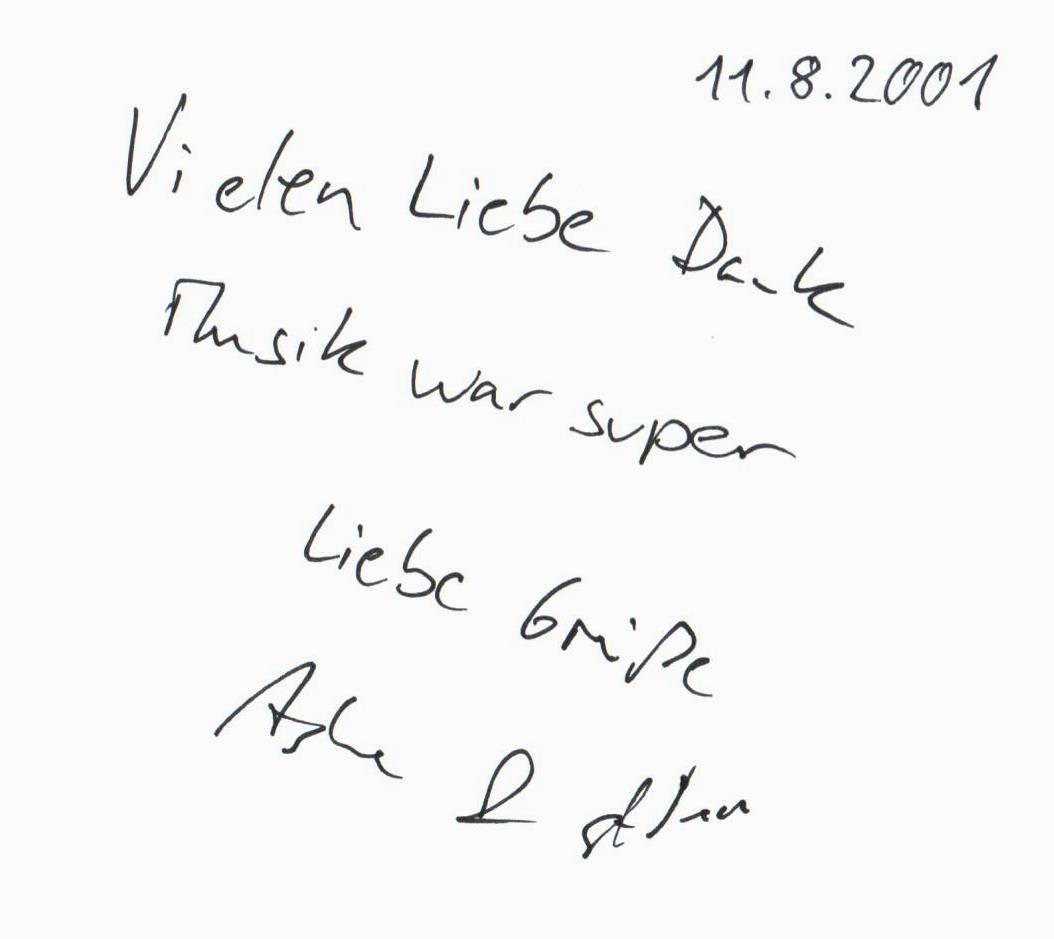 11.8.2001
Vielen Liebe Dank
Musik war super
Liebe Grüße
&